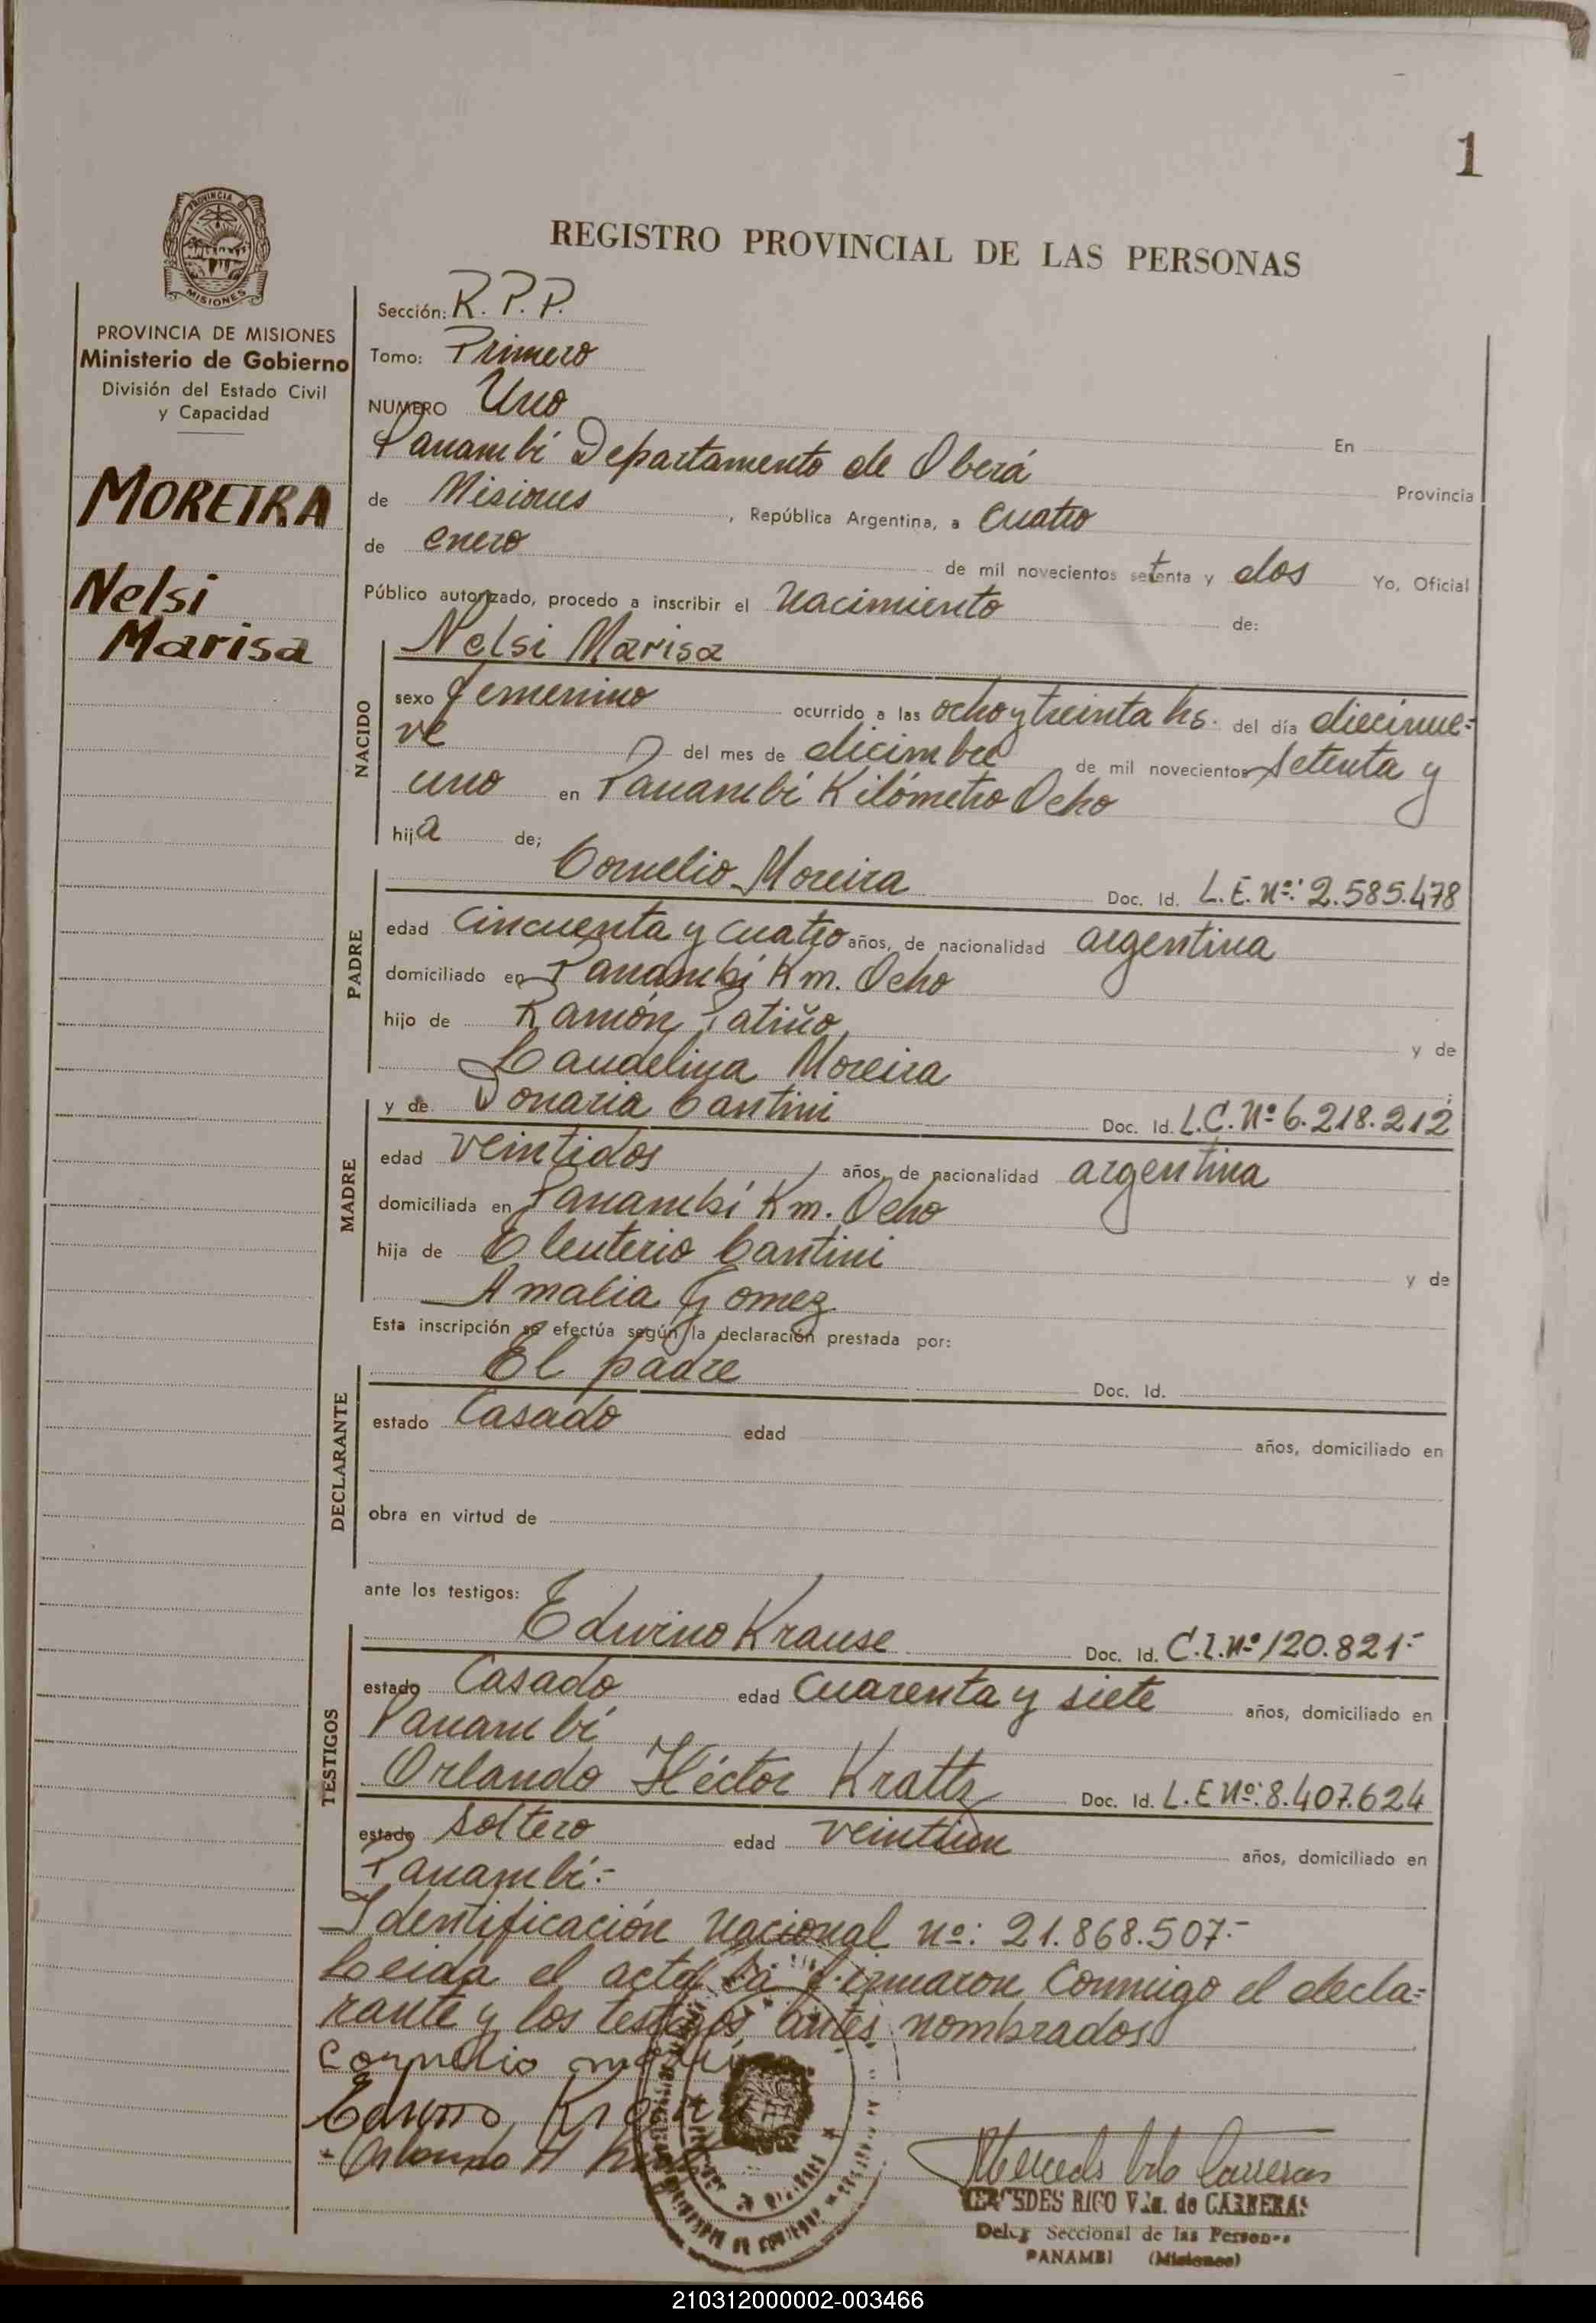 1
PROVINCIA DE
MISIONES
REGISTRO PROVINCIAL DE LAS PERSONAS
PROVINCIA DE MISIONES
Ministerio de Gobierno
División del Estado Civil
y Capacidad
MOREIRA
Nelsi
Marisa
Sección: R. P. P.
Tomo: Primero
NUMERO Uno En
Panambí Departamento de Oberá Provincia
de Misiones, República Argentina, a cuatro
de enero de mil novecientos setenta y dos Yo, Oficial
Público autorizado, procedo a inscribir el nacimiento de:
NACIDO
Nelsi Marisa
sexo femenino ocurrido a las ocho y treinta hs. del día diecinue=
ve del mes de dicimbre de mil novecientos setenta y
uno en Panambí Kilómetro Ocho
hija de;
PADRE
Cornelio Moreira Doc. Id. L.E. Nº: 2.585.478
edad cincuenta y cuatro años, de nacionalidad argentina
domiciliado en Panambí Km. Ocho
hijo de Ramón Patiño y de
Candelina Moreira
MADRE
y de Donaria Cantini Doc. Id. L.C. Nº 6.218.212
edad veintidos años, de nacionalidad argentina
domiciliada en Panambí Km. Ocho
hija de Eleuterio Cantini y de
Amalia Gomez
Esta inscripción se efectúa según la declaración prestada por:
DECLARANTE
El padre Doc. Id.
estado Casado edad años, domiciliado en
obra en virtud de
ante los testigos:
TESTIGOS
Edwino Krause Doc. Id. C.I. Nº 120.821.-
estado Casado edad cuarenta y siete años, domiciliado en
Panambí
Orlando Héctor Krattz Doc. Id. L.E Nº: 8.407.624
estado soltero edad veintiun años, domiciliado en
Panambí.-
Identificación nacional nº: 21.868.507.-
Leida el acta la firmaron conmigo el decla=
rante y los testigos antes nombrados
Cornelio
Orlando H
MERCEDES RICO Vda. de CARRERAS
Deleg Seccional de las Personas
PANAMBI (Misiones)
210312000002-003466